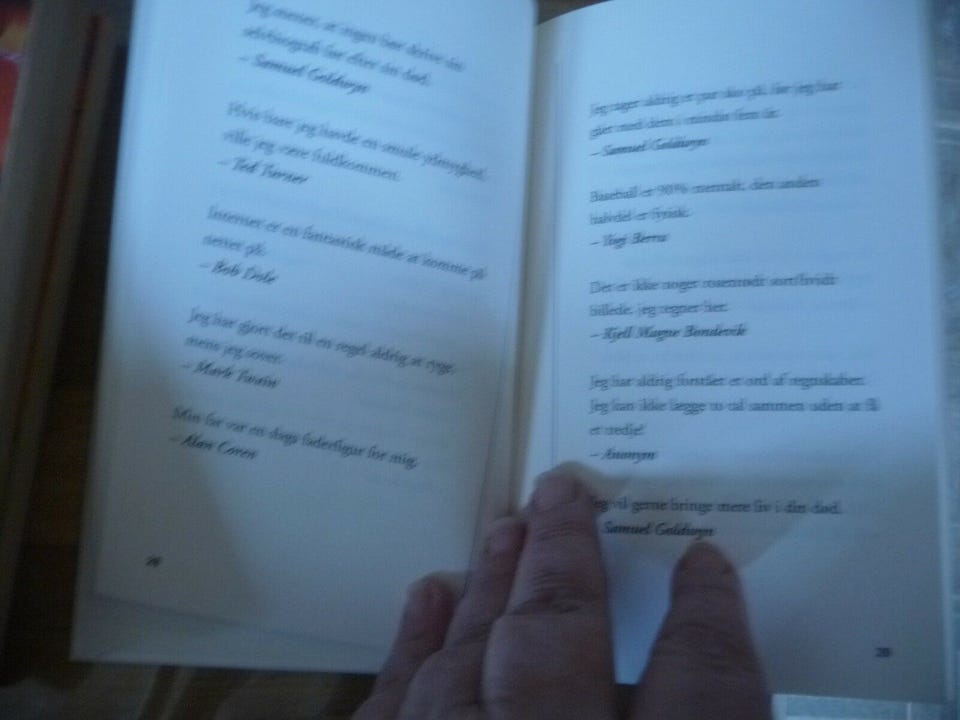 Jeg mener, at ingen bør skrive sin
selvbiografi før efter sin død.
– Samuel Goldwyn
Hvis bare jeg havde en smule ydmyghed,
ville jeg være fuldkommen.
– Ted Turner
Internet er en fantastisk måde at komme på
nettet på.
– Bob Dole
Jeg har gjort det til en regel aldrig at ryge,
mens jeg sover.
– Mark Twain
Min far var en slags faderfigur for mig.
– Alan Coren
Jeg tager aldrig et par sko på, før jeg har
gået med dem i mindst fem år.
– Samuel Goldwyn
Baseball er 90% mentalt, den anden
halvdel er fysisk.
– Yogi Berra
Det er ikke noget rosenrødt sort/hvidt
billede, jeg tegner her.
– Kjell Magne Bondevik
Jeg har aldrig forstået et ord af regnskaber.
Jeg kan ikke lægge to tal sammen uden at få
et tredje!
– Anonym
Jeg vil gerne bringe mere liv i din død.
Samuel Goldwyn